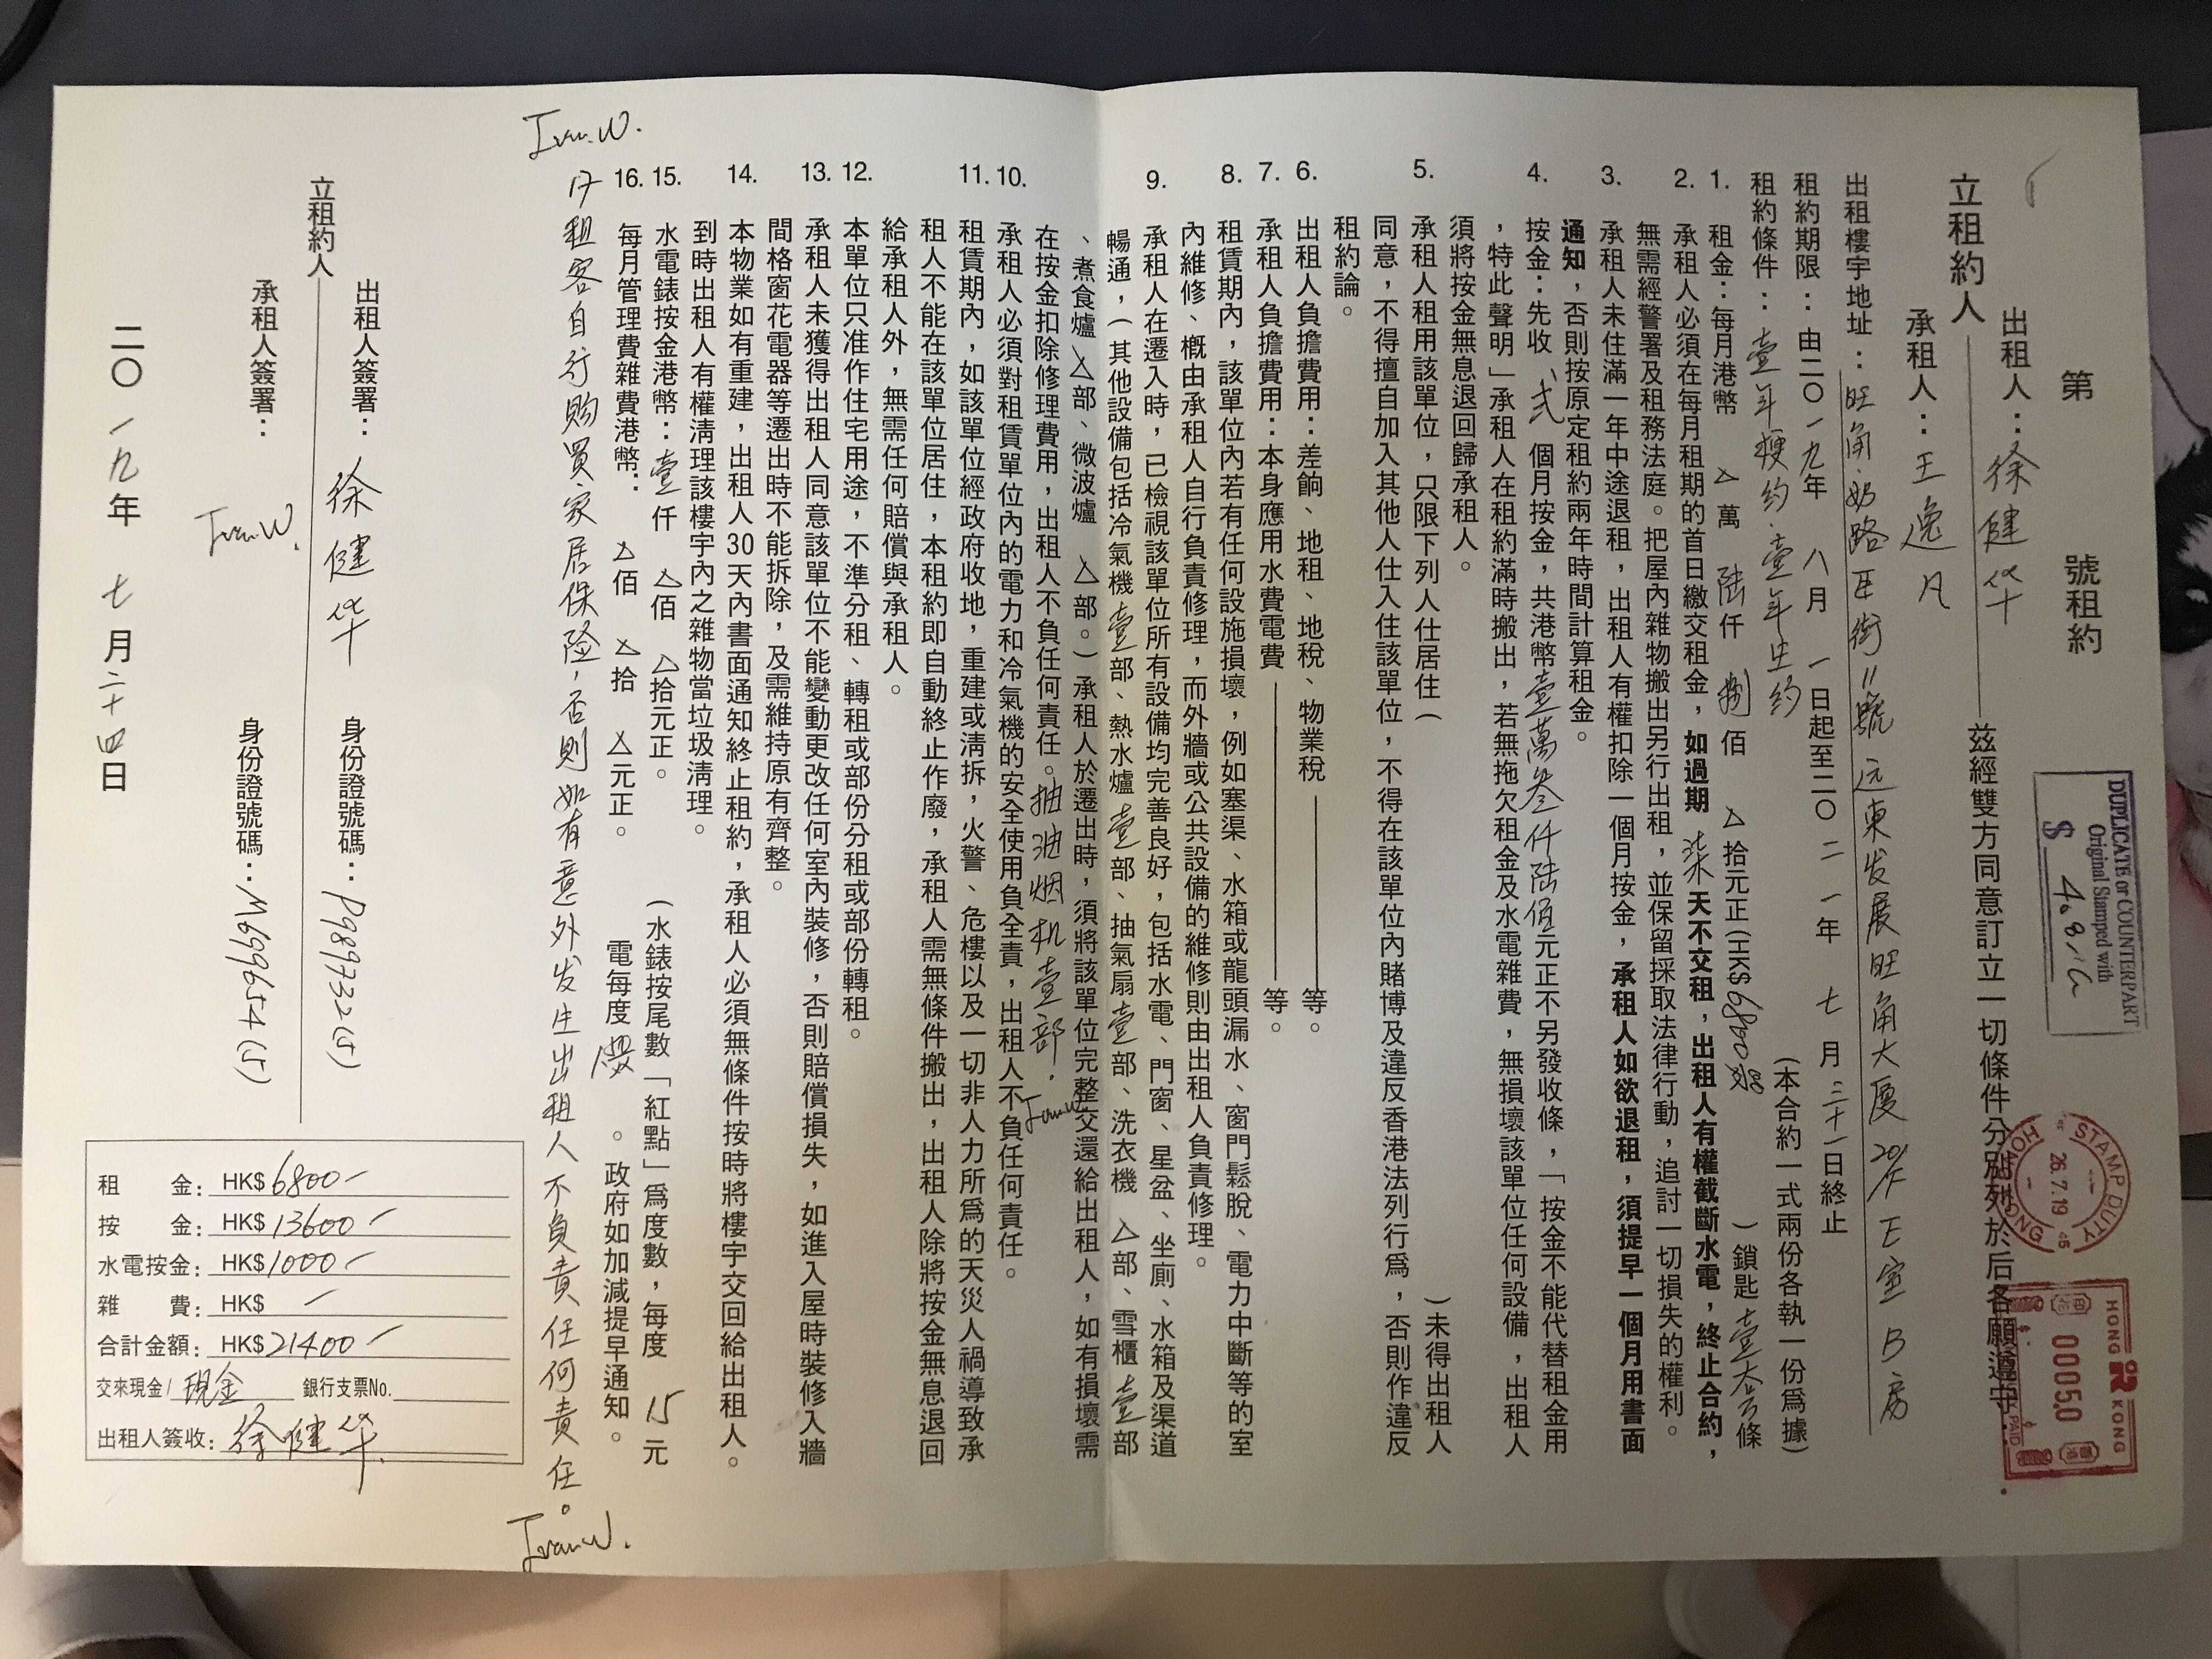 第 號租約
DUPLICATE or COUNTERPART
Original Stamped with
$
HONG KONG
STAMP DUTY
26.7.19
HONG KONG
00050
PAID
立租約人
出租人：徐健华
承租人：王逸凡
茲經雙方同意訂立一切條件分別列於后各願遵守：
出租樓宇地址：旺角 奶路臣街11號远東发展旺角大厦20/F E室B房
租約期限：由二〇一九年 八月 一日起至二〇二一年 七月三十一日終止
租約條件：壹年梗約.壹年生約 (本合約一式兩份各執一份爲據)
1. 租金：每月港幣 △萬 陸仟 捌佰 △拾元正(HK$6800 ) 鎖匙壹套條
2. 承租人必須在每月租期的首日繳交租金，如過期 柒天不交租，出租人有權截斷水電，終止合約，
無需經警署及租務法庭。把屋內雜物搬出另行出租，並保留採取法律行動，追討一切損失的權利。
3. 承租人未住滿一年中途退租，出租人有權扣除一個月按金，承租人如欲退租，須提早一個月用書面
通知，否則按原定租約兩年時間計算租金。
4. 按金：先收 弍 個月按金，共港幣壹萬叁仟陸佰元正不另發收條，「按金不能代替租金用
，特此聲明」承租人在租約滿時搬出，若無拖欠租金及水電雜費，無損壞該單位任何設備，出租人
須將按金無息退回歸承租人。
5. 承租人租用該單位，只限下列人仕居住 ( )未得出租人
同意，不得擅自加入其他人仕入住該單位，不得在該單位內賭博及違反香港法列行爲，否則作違反
租約論。
6. 出租人負擔費用：差餉、地租、地稅、物業稅 等。
7. 承租人負擔費用：本身應用水費電費 等。
8. 租賃期內，該單位內若有任何設施損壞，例如塞渠、水箱或龍頭漏水、窗門鬆脫、電力中斷等的室
內維修、概由承租人自行負責修理，而外牆或公共設備的維修則由出租人負責修理。
9. 承租人在遷入時，已檢視該單位所有設備均完善良好，包括水電、門窗、星盆、坐廁、水箱及渠道
暢通，(其他設備包括冷氣機壹部、熱水爐壹部、抽氣扇壹部、洗衣機 △部、雪櫃 壹部
、煮食爐△部、微波爐 △部。) 承租人於遷出時，須將該單位完整交還給出租人，如有損壞需
在按金扣除修理費用，出租人不負任何責任。抽油烟机壹部. Ivan.W
10. 承租人必須對租賃單位內的電力和冷氣機的安全使用負全責，出租人不負任何責任。
11. 租賃期內，如該單位經政府收地，重建或清拆，火警、危樓以及一切非人力所爲的天災人禍導致承
租人不能在該單位居住，本租約即自動終止作廢，承租人需無條件搬出，出租人除將按金無息退回
給承租人外，無需任何賠償與承租人。
12. 本單位只准作住宅用途，不準分租、轉租或部份分租或部份轉租。
13. 承租人未獲得出租人同意該單位不能變動更改任何室內裝修，否則賠償損失，如進入屋時裝修入牆
間格窗花電器等遷出時不能拆除，及需維持原有齊整。
14. 本物業如有重建，出租人30天內書面通知終止租約，承租人必須無條件按時將樓宇交回給出租人。
到時出租人有權淸理該樓宇內之雜物當垃圾淸理。
15. 水電錶按金港幣：壹仟 △佰 △拾元正。 (水錶按尾數「紅點」爲度數，每度 15元
16. 每月管理費雜費港幣： △佰 △拾 △元正。 電每度 。政府如加減提早通知。
17 租客自行購買家居保险，否則如有意外发生出租人不負責任何責任。
Ivan.W.
Ivan.W.
立租約人
出租人簽署：徐健华 身份證號碼：P989732(5)
承租人簽署：Ivan.W. 身份證號碼：M699654(5)
二〇一九年 七月二十四日
租 金：HK$6800
按 金：HK$13600
水電按金：HK$1000
雜 費：HK$
合計金額：HK$21400
交來現金/現金 銀行支票No.
出租人簽收：徐健华